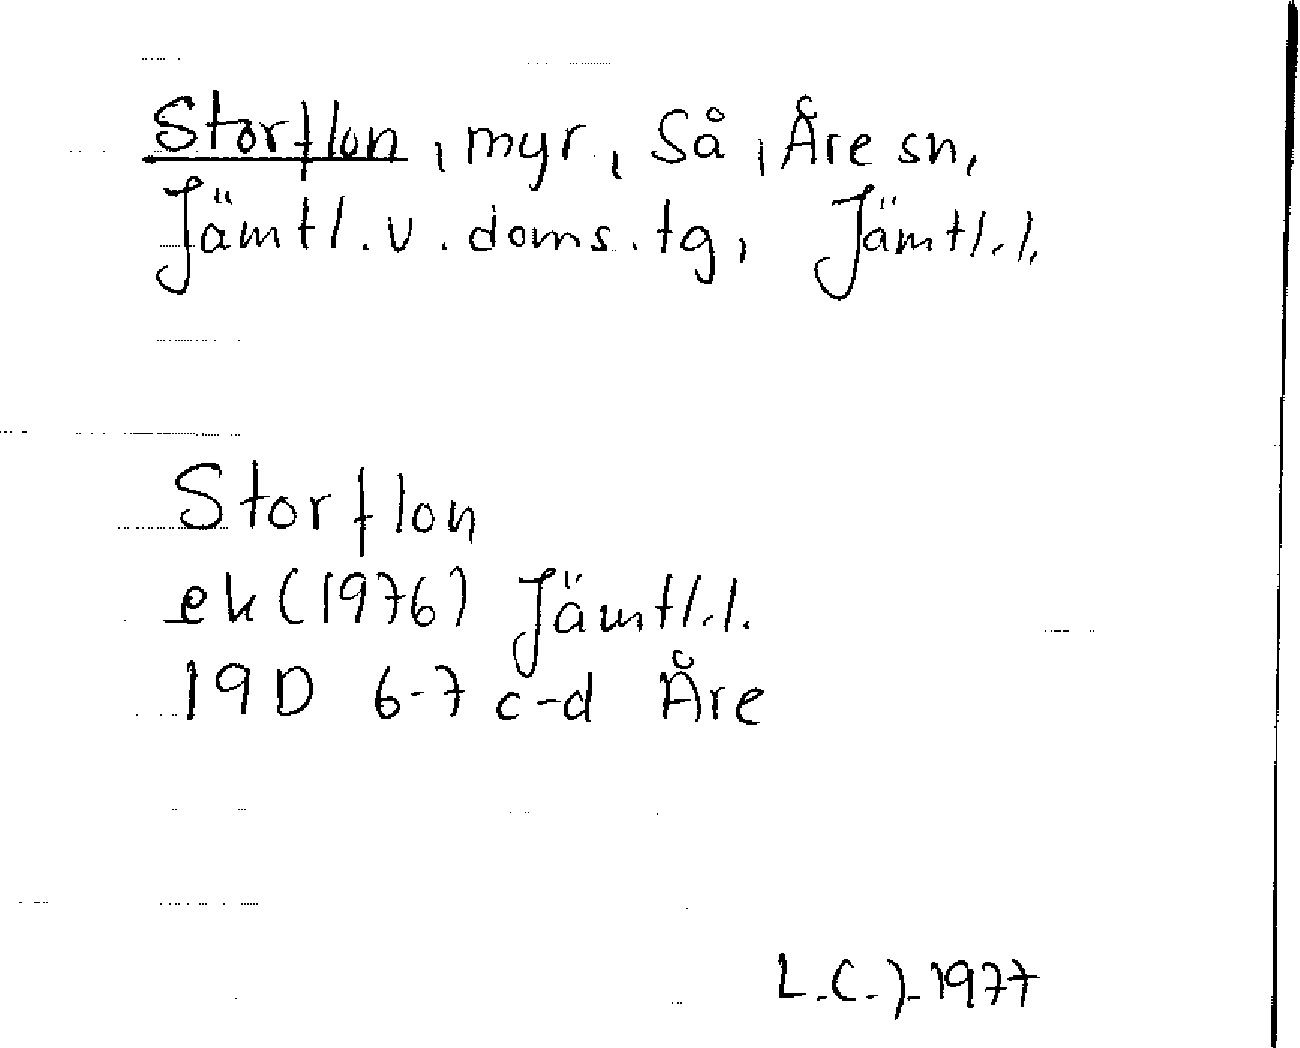 Storflon, myr, Så, Åre sn,
Jämtl. v. doms. tg, Jämtl. l.
Storflon
ek (1976) Jämtl. l.
19D 6-7 c-d Åre
L.C.J. 1977